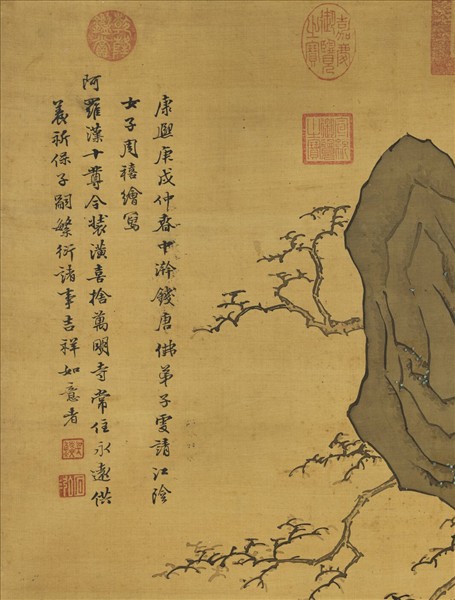 嘉慶御覽之寶
康熙庚戌仲春中澣錢唐佛弟子雯請江陰
女子周禧繪寫
阿羅漢十尊今裝潢喜捨萬明寺常住永遠供
養祈保子嗣繁衍諸事吉祥如意者